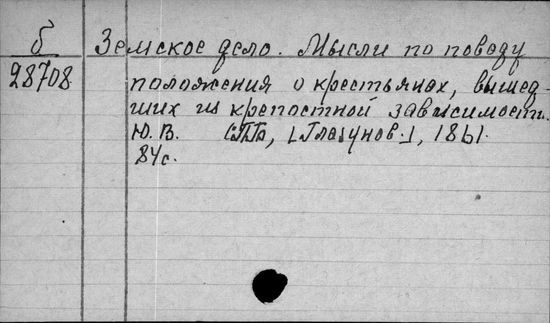 б Земское дело. Мысли по поводу
28708 положения о крестьянах, вышед-
ших из крепостной зависимости.
Ю. В. СПБ, [Глазунов], 1861.
84 с.